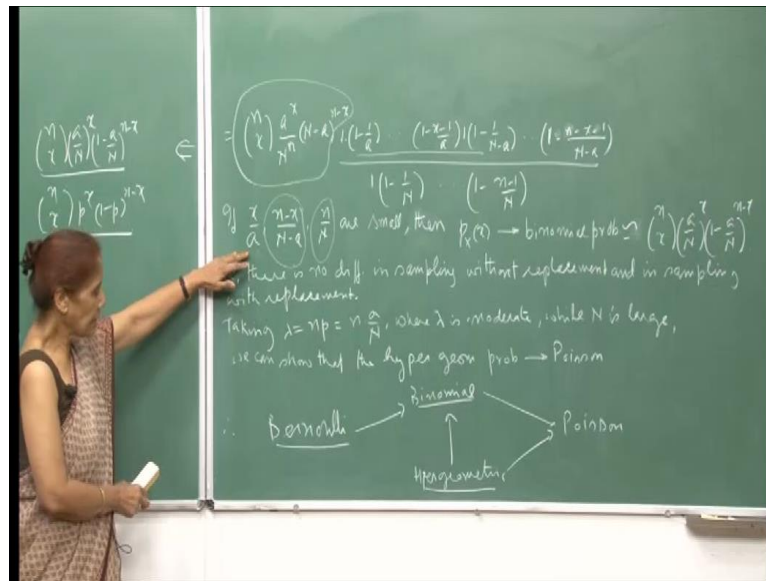 (n x) (a/N)^x (1-a/N)^{n-x} ⇐
(n x) p^x (1-p)^{n-x}
= (n x) a^x/N^n (N-a)^{n-x} 1.(1-1/a) .. (1-x-1/a) 1(1-1/N-a) .. (1-n-x-1/N-a)
1(1-1/N) .. (1-n-1/N)
If x/a, n-x/N-a, n/N are small, then p_X(x) → binomial prob ≃ (n x) (a/N)^x (1-a/N)^{n-x}
there is no diff. in sampling without replacement and in sampling
with replacement.
Taking λ = np = n a/N, where λ is moderate, while N is large,
we can show that the hyper geom prob → Poisson
∴ Bernoulli → Binomial → Poisson
Hypergeometric